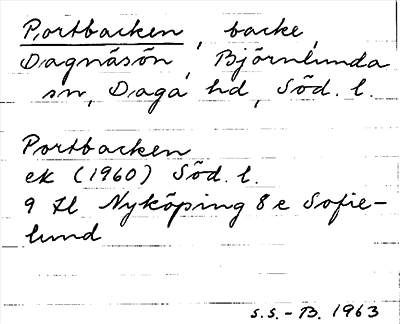 Portbacken, backe,
Dagnäsön, Björnlunda
sn, Daga hd, Söd. l.
Portbacken
ek (1960) Söd. l.
9 H Nyköping 8 e Sofie-
lund
S.S. - B. 1963